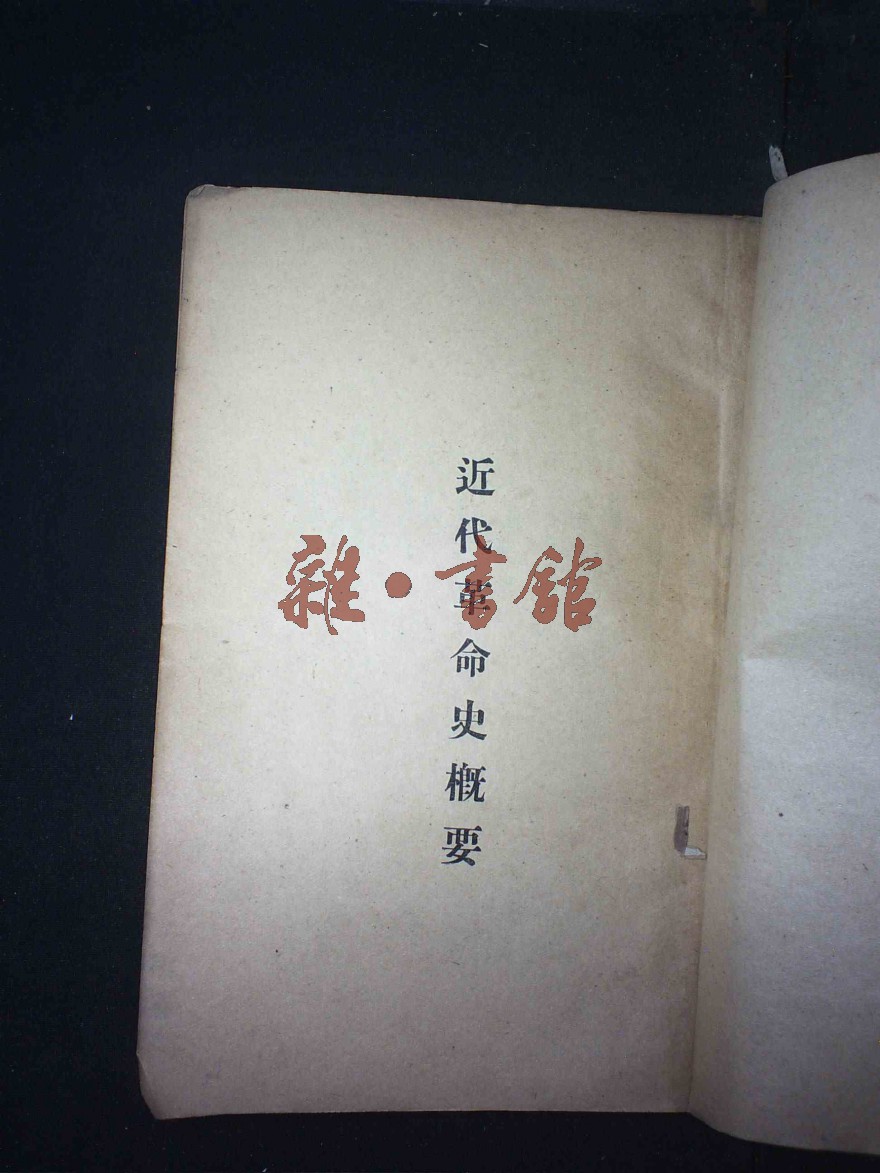 近代革命史概要
雜·書館